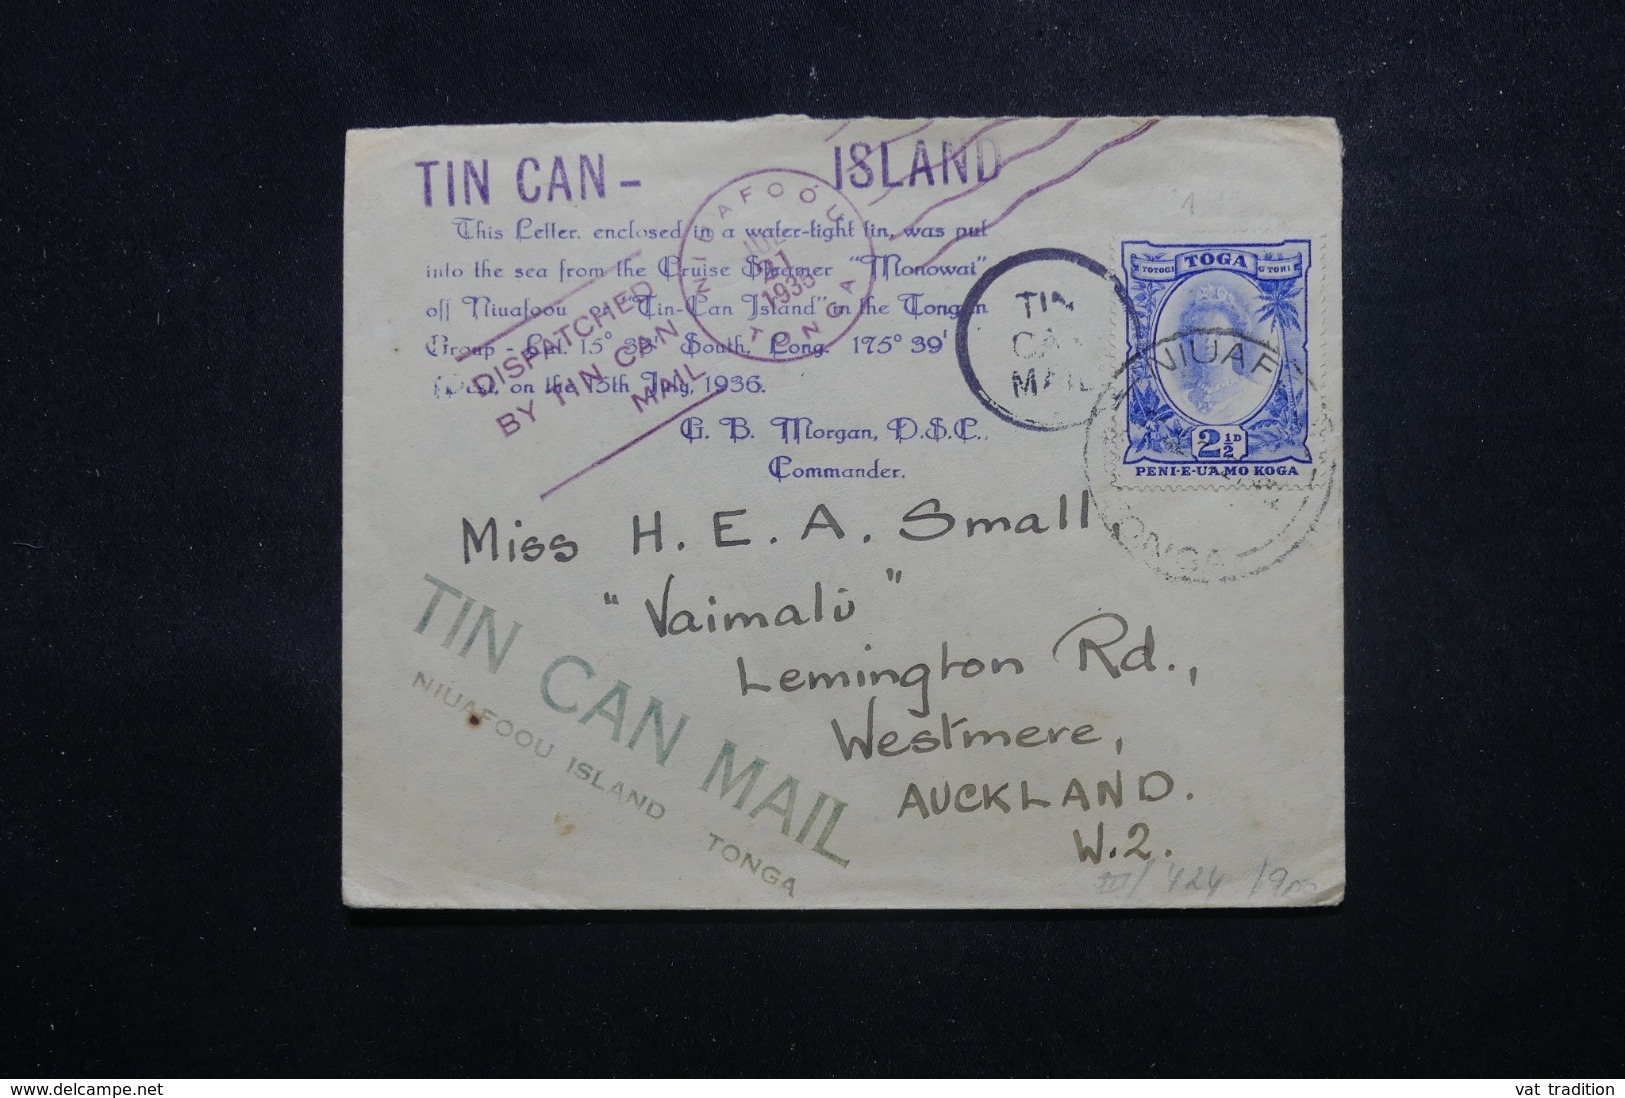 TIN CAN - ISLAND
This Letter, enclosed in a water-tight tin, was put
into the sea from the Cruise Steamer "Monowai"
off Niuafoou or "Tin-Can Island" in the Tongan
Group - Lat. 15° South, Long. 175° 39'
West, on the 15th July, 1936.
G. B. Morgan, D.S.C.,
Commander.
NIUAFOOU
JUL
21
1936
TONGA
DISPATCHED
BY TIN CAN
MAIL
TIN
CAN
MAIL
TOGA
TOTOGI
2½D
PENI-E-UA MO KOGA
NIUAF
TONGA
Miss H. E. A. Small,
"Vaimalu"
Lemington Rd.,
Westmere,
AUCKLAND.
W.2.
TIN CAN MAIL
NIUAFOOU ISLAND TONGA
www.delcampe.net
vat_tradition